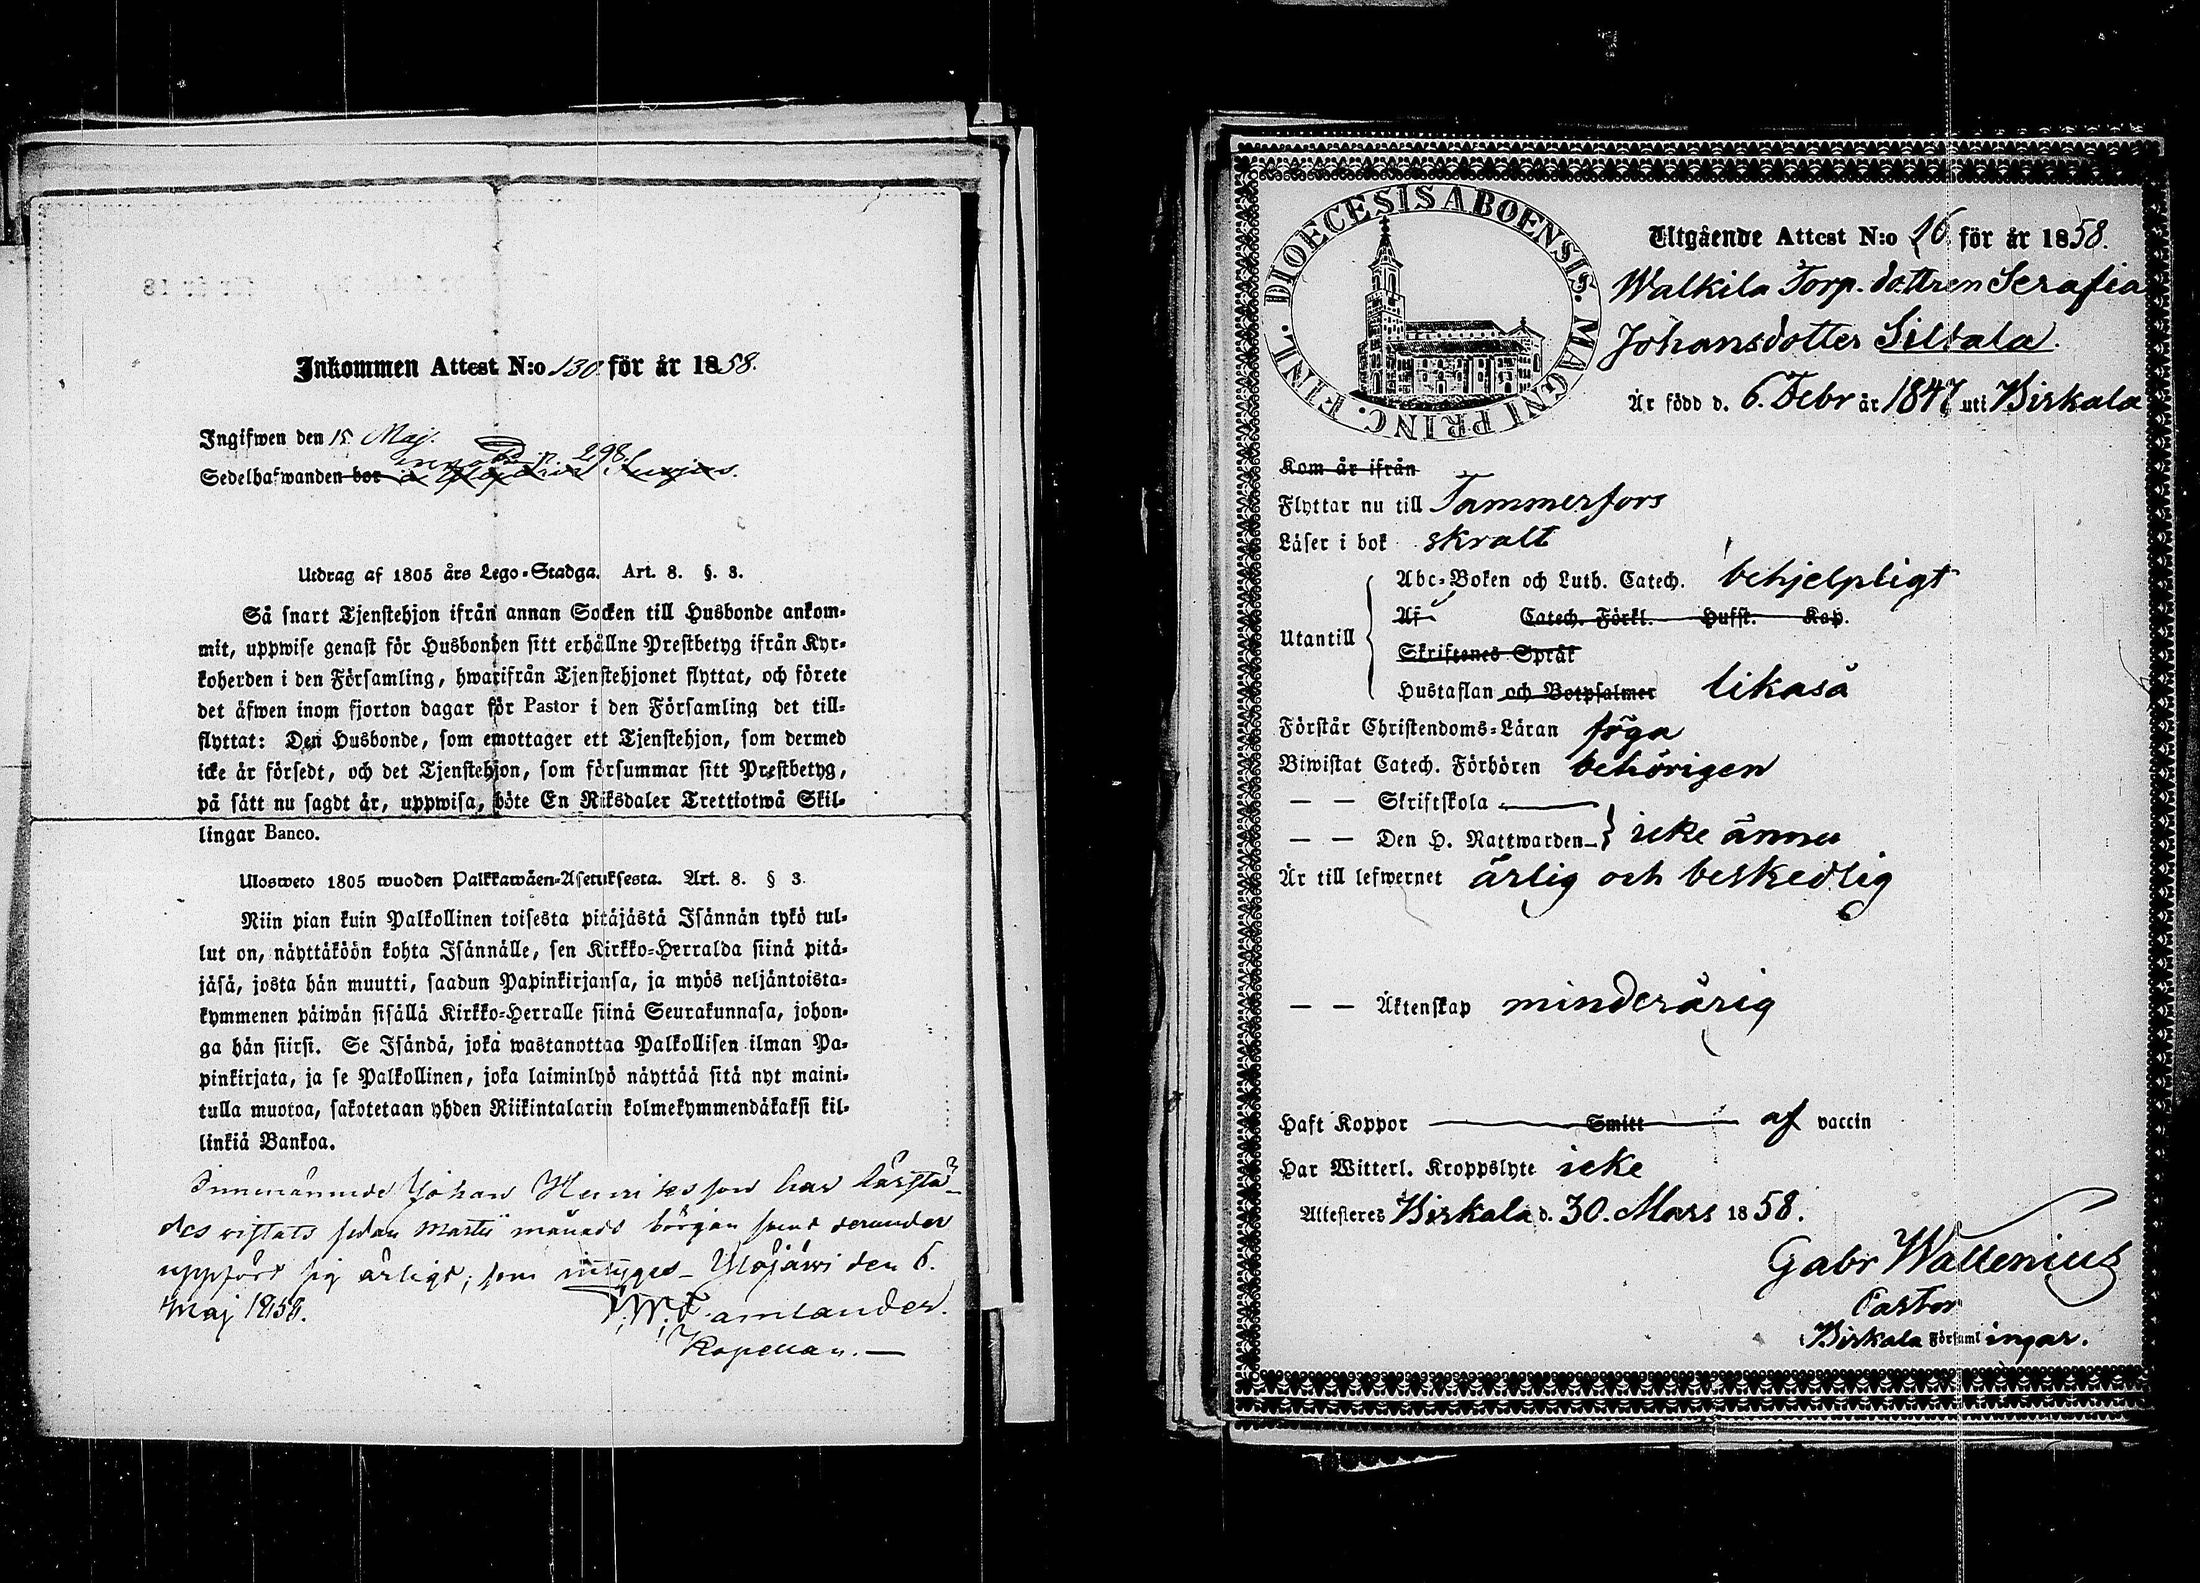 Inkommen Attest N:o 130. för år 1858.
Ingifwen den 15. Maj.
298.
Sedelhafwanden bor i
Utdrag af 1805 års Lego-Stadga. Art. 8. §. 3.
Så snart Tjenstehjon ifrån annan Socken till Husbonde ankom-
mit, uppwise genast för Husbonden sitt erhållne Prestbetyg ifrån Kyr-
koherden i den Församling, hwarifrån Tjenstehjonet flyttat, och förete
det äfwen inom fjorton dagar för Pastor i den Församling det till-
flyttat: Den Husbonde, som emottager ett Tjenstehjon, som dermed
icke är försedt, och det Tjenstehjon, som försummar sitt Prestbetyg,
på sätt nu sagdt är, uppwisa, böte En Riksdaler Trettiotwå Skil-
lingar Banco.
Ulosweto 1805 wuoden Palkkawäen-Asetuksesta. Art. 8. § 3.
Niin pian kuin Palkollinen toisesta pitäjästä Isännän tykö tul-
lut on, näyttäköön kohta Isännälle, sen Kirkko-Herralda siinä pitä-
jäsä, josta hän muutti, saadun Papinkirjansa, ja myös neljäntoista-
kymmenen päiwän sisällä Kirkko-Herralle siinä Seurakunnasa, johon-
ga hän siirsi. Se Isändä, joka wastanottaa Palkollisen ilman Pa-
pinkirjata, ja se Palkollinen, joka laiminlyö näyttää sitä nyt maini-
tulla muotoa, sakotetaan yhden Riikintalarin kolmekymmendäkaksi kil-
linkiä Bankoa.
Innenämnde Johan Henriksson har härstä-
des vistats sedan Martii månads början samt derunder
uppfört sig ärligt; som intygas Ylöjärvi den 6.
Maj 1858.
Kapellan.
DIOECESIS ABOENSIS. MAGNI PRINC. FINL.
Utgående Attest N:o 16 för år 1858.
Walkila Torp. dottren Serafia
Johansdotter Siltala.
Är född d. 6. Febr år 1847 uti Birkala
Kom år ifrån
Flyttar nu till Tammerfors
Läser i bok skralt
Abc-Boken och Luth. Catech. behjelpligt
Af Catech. Förkl. Hufst. Kap.
Utantill
Skriftenes Språk
Hustaflan och Botpsalmer likaså
Förstår Christendoms-Läran föga
Biwistat Catech. Förhören behörigen
— — Skriftskola
— — Den H. Nattwarden } icke ännu
Är till lefwernet ärlig och beskedlig
— — Äktenskap minderårig
Haft Koppor Smitt af vaccin
Har Witterl. Kroppslyte icke
Attesteres Birkala d. 30. Mars 1858.
Gabr Wallenius
Pastor
i Birkala Församlingar.